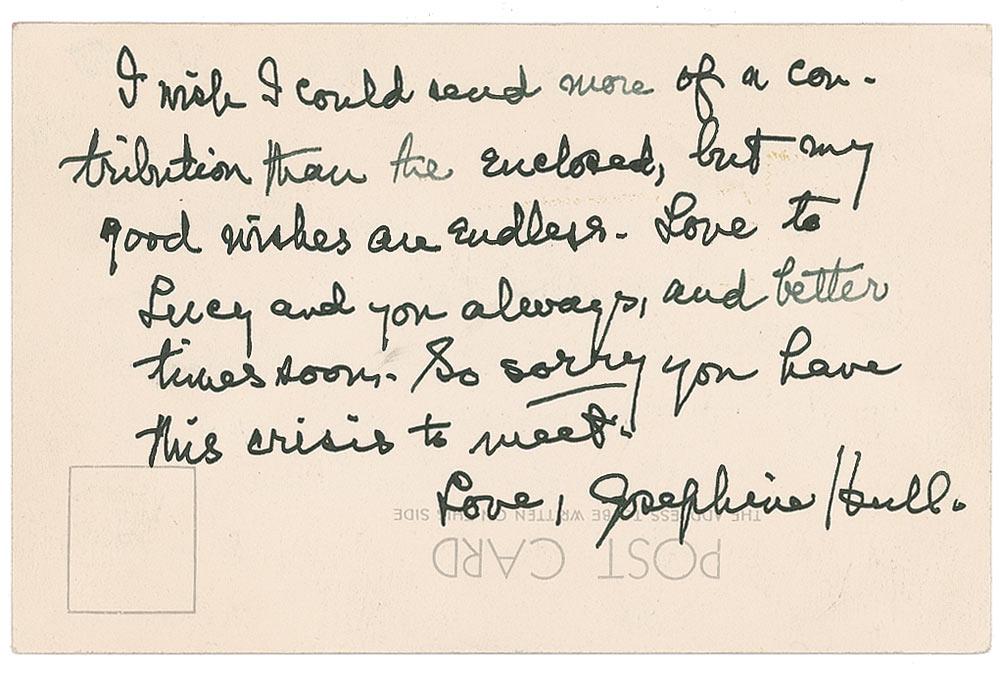 I wish I could send more of a con-
tribution than the enclosed, but my
good wishes are endless. Love to
Lucy and you always, and better
times soon. So sorry you have
this crisis to meet.
Love, Josephine Hull.
THE ADDRESS TO BE WRITTEN ON THIS SIDE
POST CARD